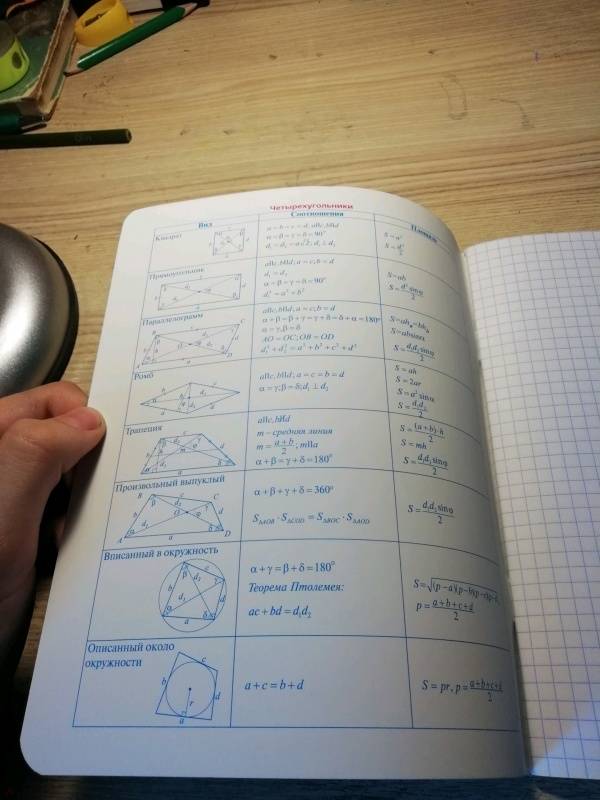 Четырехугольники
Вид Соотношения Площадь
Квадрат
a = b = c = d; a∥c, b∥d
α = β = γ = δ = 90°
d₁ = d₂ = a√2; d₁ ⊥ d₂
S = a²
S = d²/2
Прямоугольник
a∥c, b∥d; a = c, b = d
d₁ = d₂
α = β = γ = δ = 90°
S = ab
S = d² sinα/2
Параллелограмм
a∥c, b∥d; a = c; b = d
α + β = β + γ = γ + δ = δ + α = 180°
α = γ, β = δ
AO = OC; OB = OD
d₁² + d₂² = a² + b² + c² + d²
S = ahₐ = bh_b
S = absinα
S = d₁d₂ sinα/2
Ромб
a∥c, b∥d; a = c = b = d
α = γ; β = δ; d₁ ⊥ d₂
S = ah
S = 2ar
S = a² sinα
S = d₁d₂/2
Трапеция
a∥c, b∦d
m - средняя линия
m = (a + b)/2; m∥a
α + β = γ + δ = 180°
S = (a + b)·h/2
S = mh
S = d₁d₂ sinα/2
Произвольный выпуклый
α + β + γ + δ = 360°
S△AOB · S△COD = S△BOC · S△AOD
S = d₁d₂ sinα/2
Вписанный в окружность
α + γ = β + δ = 180°
Теорема Птолемея:
ac + bd = d₁d₂
p = (a + b + c + d)/2
Описанный около
окружности
a + c = b + d
S = pr, p = (a + b + c + d)/2